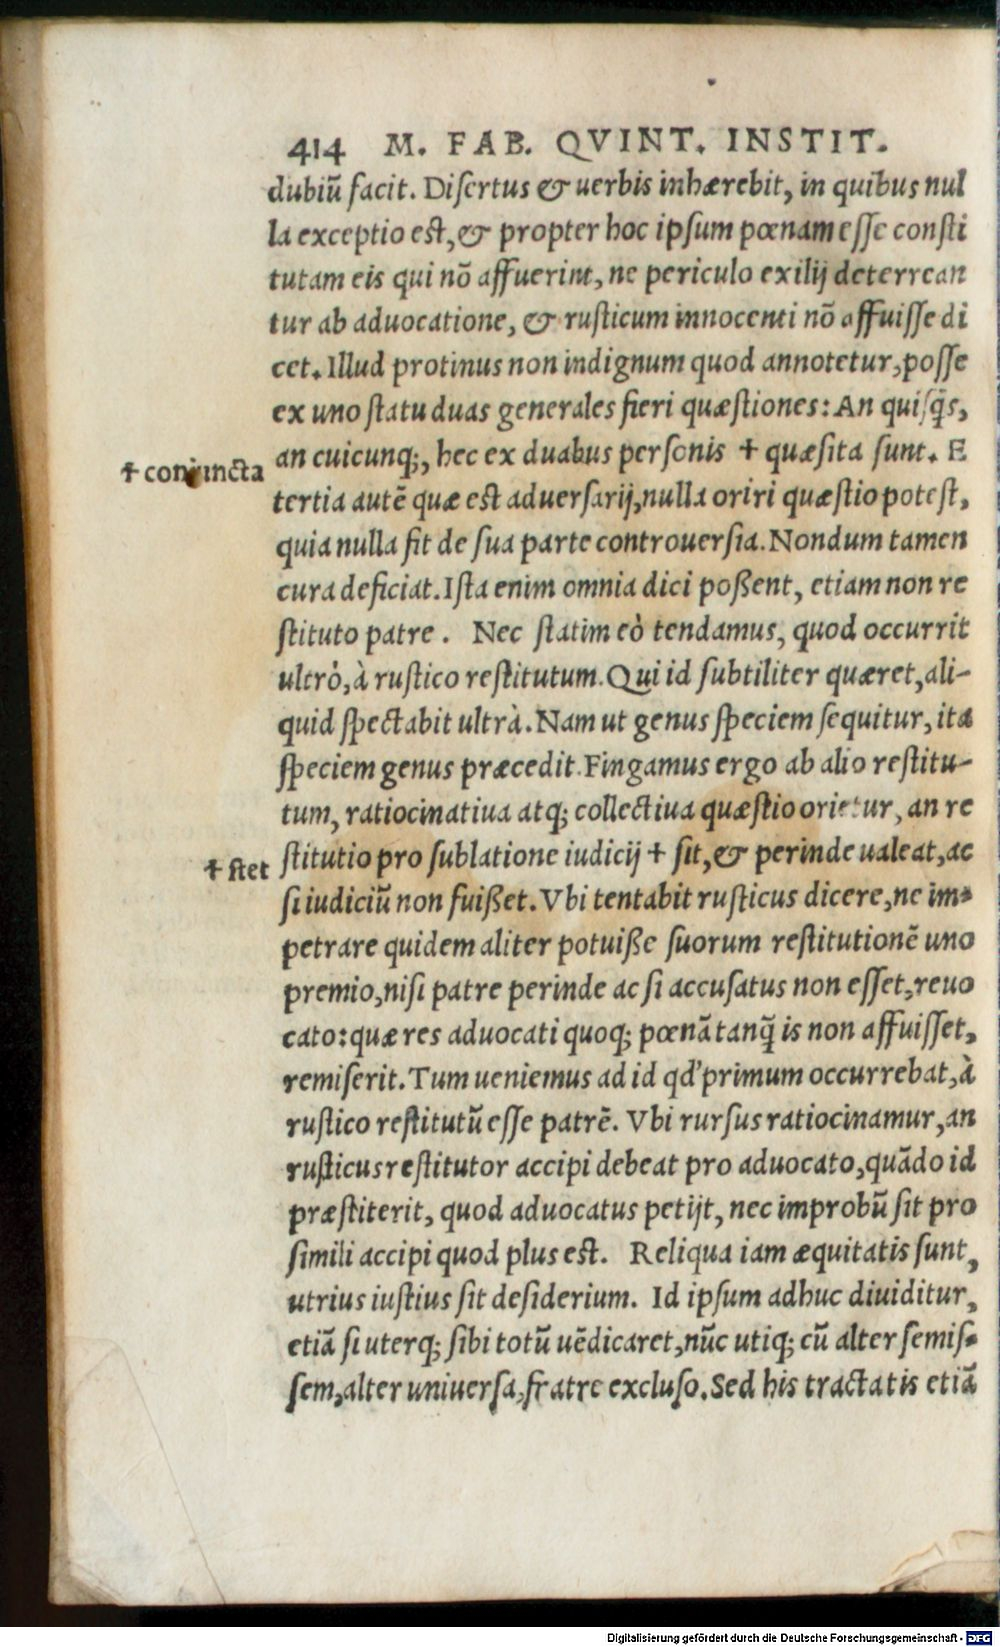 414 M. FAB. QVINT. INSTIT.
dubiū facit. Disertus & uerbis inhærebit, in quibus nul
la exceptio est, & propter hoc ipsum pœnam esse consti
tutam eis qui nō affuerint, ne periculo exilij deterrean
tur ab aduocatione, & rusticum innocenti nō affuisse di
cet. Illud protinus non indignum quod annotetur, posse
ex uno statu duas generales fieri quæstiones: An quisq̄s,
an cuicunq;, hec ex duabus personis † quæsita sunt. E
† coniuncta
tertia autē quæ est aduersarij, nulla oriri quæstio potest,
quia nulla fit de sua parte controuersia. Nondum tamen
cura deficiat. Ista enim omnia dici poßent, etiam non re
stituto patre. Nec statim eò tendamus, quod occurrit
ultrò, à rustico restitutum. Qui id subtiliter quæret, ali-
quid spectabit ultrà. Nam ut genus speciem sequitur, ita
speciem genus præcedit. Fingamus ergo ab alio restitu-
tum, ratiocinatiua atq; collectiua quæstio orietur, an re
stitutio pro sublatione iudicij † sit, & perinde ualeat, ac
† stet
si iudiciū non fuißet. Vbi tentabit rusticus dicere, ne im-
petrare quidem aliter potuiße suorum restitutionē uno
premio, nisi patre perinde ac si accusatus non esset, reuo
cato: quæ res aduocati quoq; pœnā tanq̄ is non affuisset,
remiserit. Tum ueniemus ad id qd' primum occurrebat, à
rustico restitutū esse patrē. Vbi rursus ratiocinamur, an
rusticus restitutor accipi debeat pro aduocato, quādo id
præstiterit, quod aduocatus petijt, nec improbū sit pro
simili accipi quod plus est. Reliqua iam æquitatis sunt,
utrius iustius sit desiderium. Id ipsum adhuc diuiditur,
etiā si uterq; sibi totū uēdicaret, nūc utiq; cū alter semis-
sem, alter uniuersa, fratre excluso. Sed his tractatis etiā
Digitalisierung gefördert durch die Deutsche Forschungsgemeinschaft - DFG